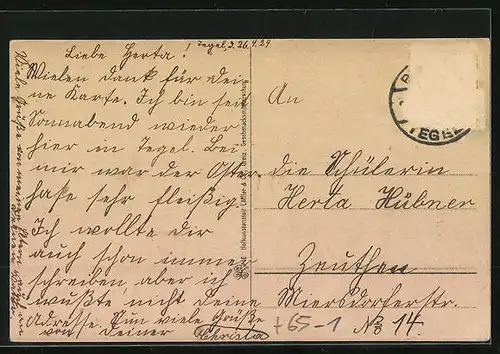 Tegel, d. 26.4.29
Liebe Herta!
Vielen Dank für dei-
ne Karte. Ich bin seit
Sonnabend wieder
hier in Tegel. Bei
mir war der Oster-
hase sehr fleißig.
Ich wollte dir
auch schon immer
schreiben aber ich
wußte nicht Deine
Adresse. Nun viele Grüße
von Deiner Christa
Viele Grüße von
An
die Schülerin
Herta Hübner
Zeuthen
Miersdorferstr.
No 14.
+65-1
TEGEL